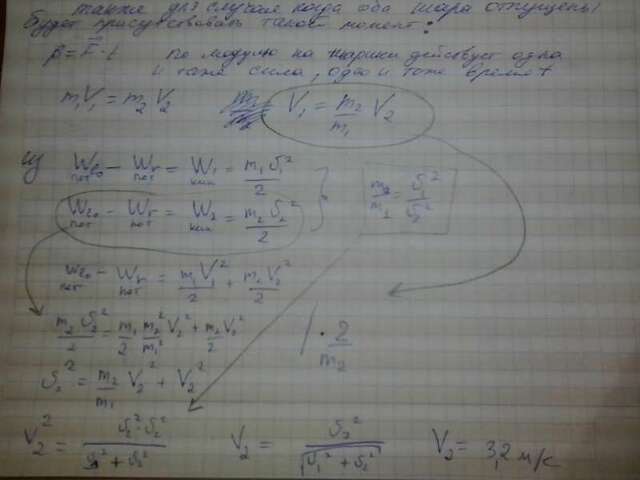 также для случая когда оба шара отпущены
будет присутствовать такой момент:
p = F · t по модулю на шарики действует одна
и таже сила, одно и тоже время t
m₁V₁ = m₂V₂ V₁ = m₂/m₁ V₂
W_r₀ пот − W_r пот = W₁ кин = m₁υ₁²/2
W_r₀ пот − W_r пот = W₂ кин = m₂υ₂²/2
m₂/m₁ = υ₁²/υ₂²
W_r₀ пот − W_r пот = m₁V₁²/2 + m₂V₂²/2
m₂υ₂²/2 = m₁/2 m₂²/m₁² V₂² + m₂V₂²/2 | · 2/m₂
υ₂² = m₂/m₁ V₂² + V₂²
V₂² = υ₂²·υ₂²/(υ₁² + υ₂²) V₂ = υ₂²/√(υ₁² + υ₂²) V₂ = 3,2 м/с